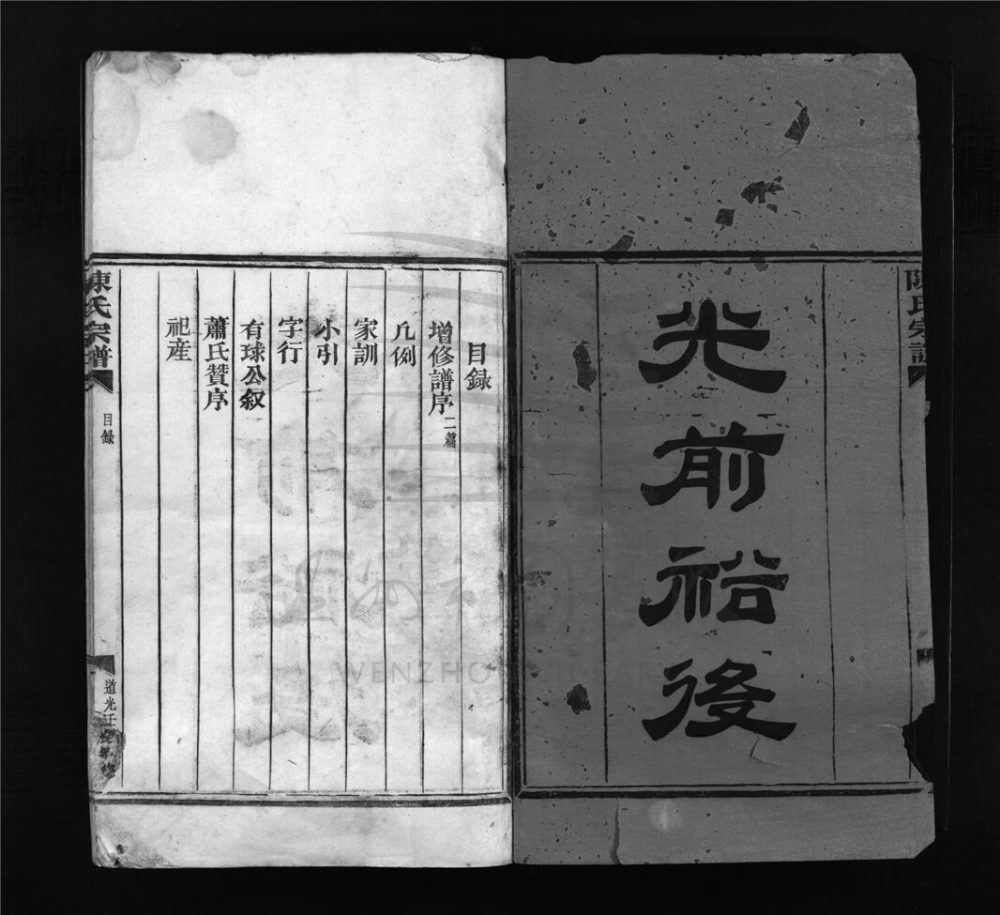 光前裕後
陳氏宗譜
目錄
增修譜序二篇
凡例
家訓
小引
字行
有球公叙
蕭氏贊序
祀産
陳氏宗譜
目錄
道光壬
修
WENZHO